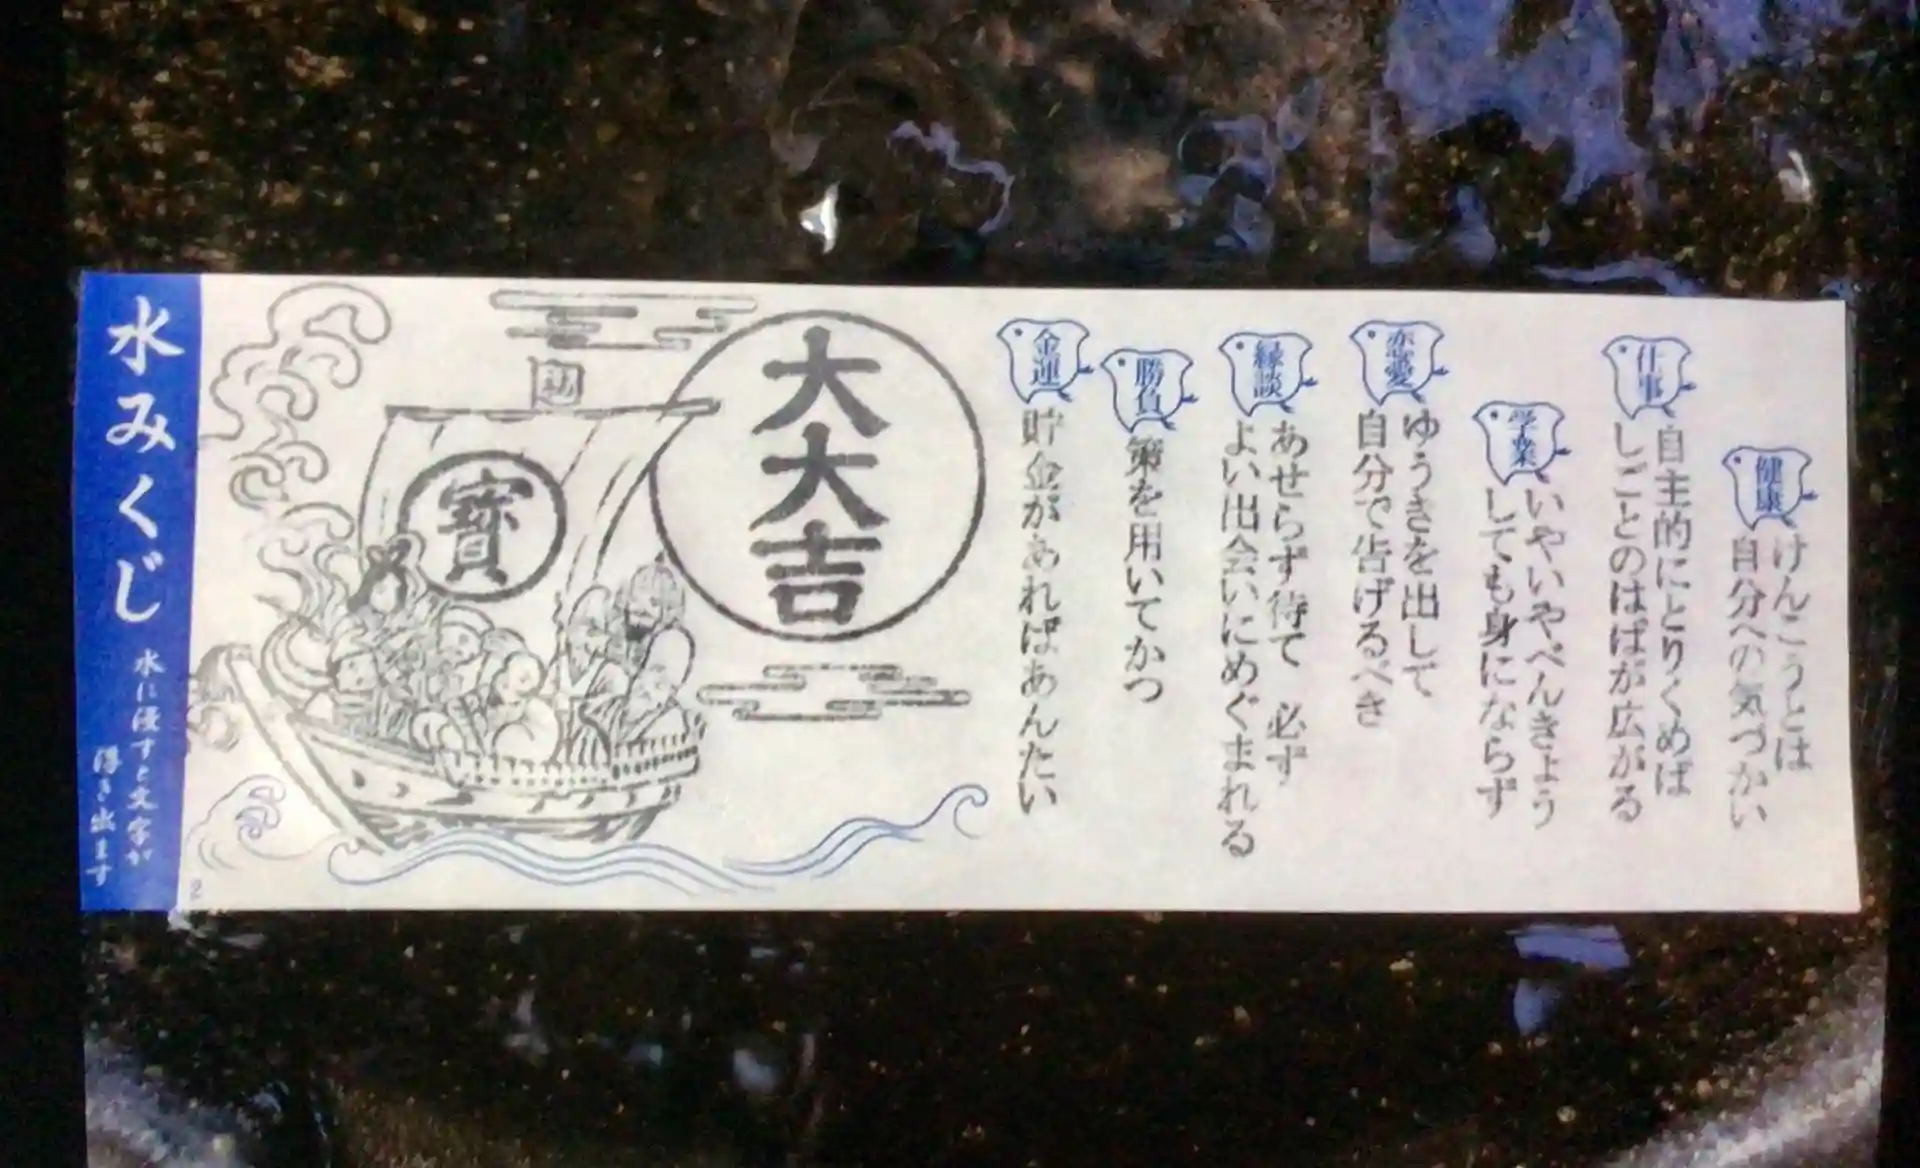 健康
けんこうとは
自分への気づかい
仕事
自主的にとりくめば
しごとのはばが広がる
学業
いやいやべんきょう
しても身にならず
恋愛
ゆうきを出して
自分で告げるべき
縁談
あせらず待て 必ず
よい出会いにめぐまれる
勝負
策を用いてかつ
金運
貯金があればあんたい
大大吉
寳
水みくじ
水に浸すと文字が
浮き出ます
2